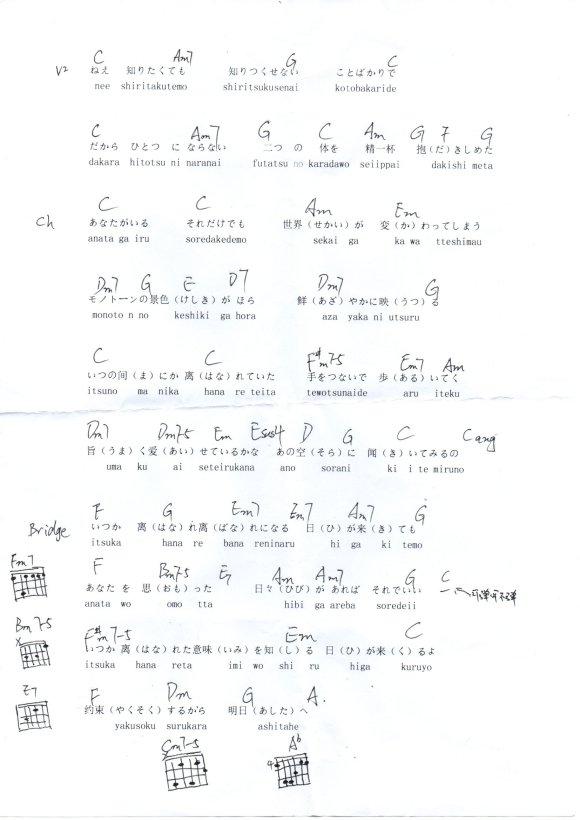 C Am7 G C
V2 ねえ 知りたくても 知りつくせない ことばかりで
nee shiritakutemo shiritsukusenai kotobakaride
C Am7 G C Am G F G
だから ひとつ に ならない 二つ の 体を 精一杯 抱(だ)きしめた
dakara hitotsu ni naranai futatsu no karadawo seiippai dakishi meta
C C Am Em
Ch あなたがいる それだけでも 世界(せかい)が 変(か)わってしまう
anata ga iru soredakedemo sekai ga ka wa tteshimau
Dm7 G E D7 Dm7 G
モノトーンの景色(けしき)が ほら 鮮(あざ)やかに映(うつ)る
monoto n no keshiki ga hora aza yaka ni utsuru
C C F#m7-5 Em7 Am
いつの間(ま)にか 离(はな)れていた 手をつないで 歩(ある)いてく
itsuno ma nika hana re teita tewotsunaide aru iteku
Dm7 Dm7-5 Em Esus4 D G C Cang
旨(うま)く爱(あい)せているかな あの空(そら)に 闻(き)いてみるの
uma ku ai seteirukana ano sorani ki i te miruno
F G Em7 Em7 Am7 G
Bridge いつか 离(はな)れ离(ばな)れになる 日(ひ)が来(き)ても
itsuka hana re bana reninaru hi ga ki temo
Fm7 F Bm7-5 E7 Am Am7 G C
あなた を 思(おも)った 日々(ひび)が あれば それでいい
anata wo omo tta hibi ga areba soredeii
Bm7-5 F#m7-5 Em C
x いつか 离(はな)れた意味(いみ)を知(し)る 日(ひ)が来(く)るよ
itsuka hana reta imi wo shi ru higa kuruyo
E7 F Dm G A.
约束(やくそく)するから 明日(あした)へ
yakusoku surukara ashitahe
Cm7-5 Ab